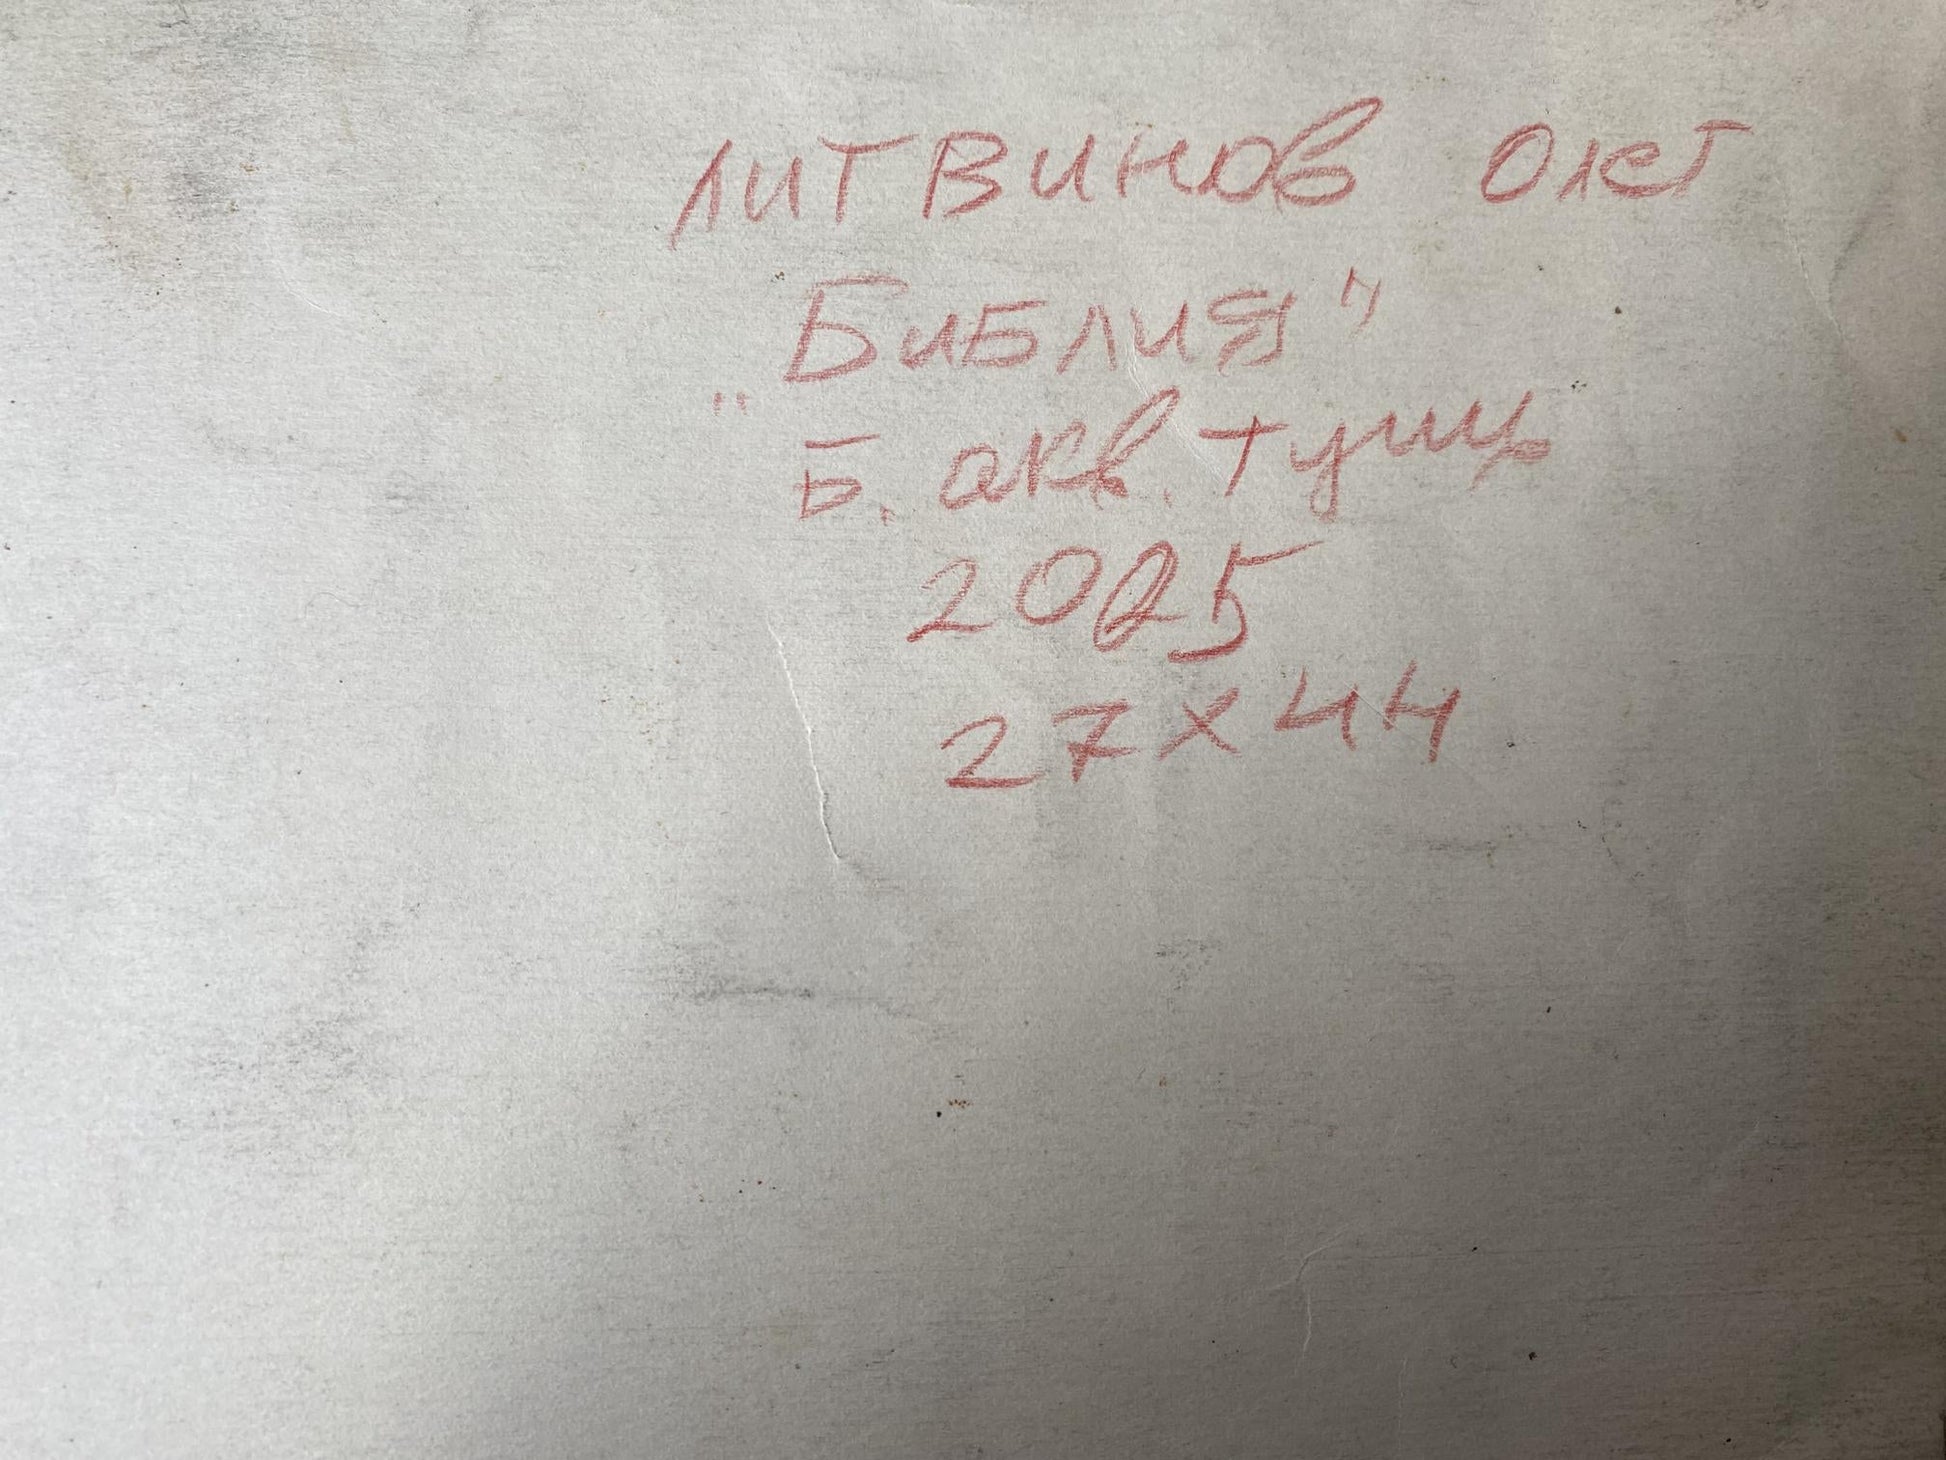 Литвинов Олег
"Библия"
Б. акв. тушь
2025
27x44